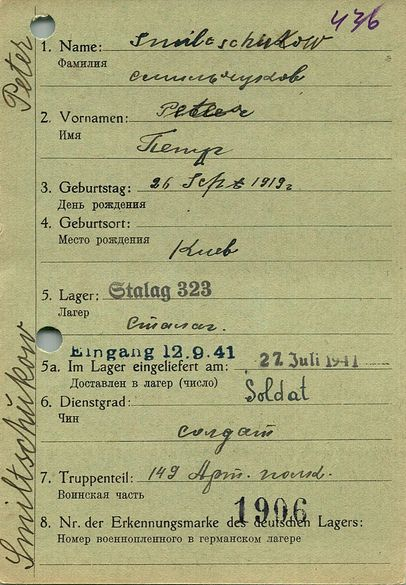 436
1. Name: Smilschukow
Фамилия
смильчуков
2. Vornamen: Peter
Имя
Петр
3. Geburtstag: 26 Sept 1919г
День рождения
4. Geburtsort:
Место рождения
Киев
5. Lager: Stalag 323
Лагер
Сталаг.
Eingang 12.9.41
5a. Im Lager eingeliefert am: 27. Juli 1941
Доставлен в лагер (число)
6. Dienstgrad: Soldat
Чин
солдат
7. Truppenteil: 149 Арт. полк.
Воинская часть
1906
8. Nr. der Erkennungsmarke des deutschen Lagers:
Номер военнопленного в германском лагере
Smiltschukow Peter